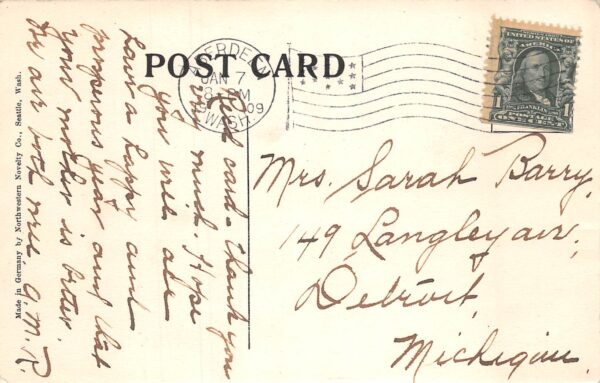 POST CARD
ABERDEEN,
JAN 7
8-PM
1909
WASH.
UNITED STATES OF
AMERICA
FRANKLIN
1 1
POSTAGE
ONE CENT
Recd card - thank you
much. Hope
you will all
have a happy and
prosperous year and that
your mother is better.
We are both well.
Mrs. Sarah Barry,
149 Langley av.,
Detroit,
Michigan
Made in Germany by Northwestern Novelty Co., Seattle, Wash.